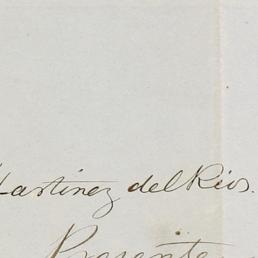 Martinez del Rios.
Presente